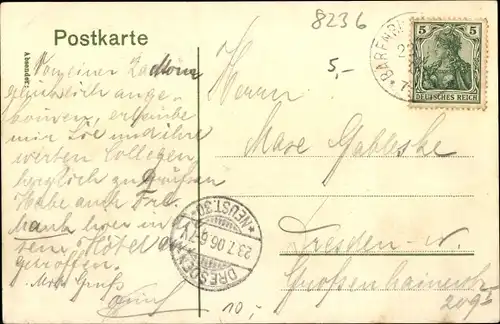 8236
Postkarte
5,-
Absender:
BÄRENF
5 5
DEUTSCHES REICH
Von einer
glücklich ange-
kommen, erlaube
mir Sie und ihre
werten Collegen
herzlich zu grüßen
Habe auch Frl.
hier in
Hotel
getroffen.
Mit Gruß
Herrn
Max
Dresden - N.
Großenhainerstr
209
DRESDEN
23.7.06.6-7
*NEUST.30*
10,-